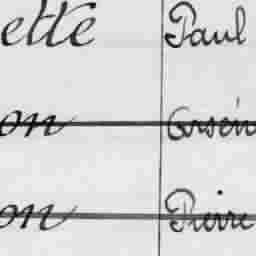 ette Paul
on Arsèn
on Pierre